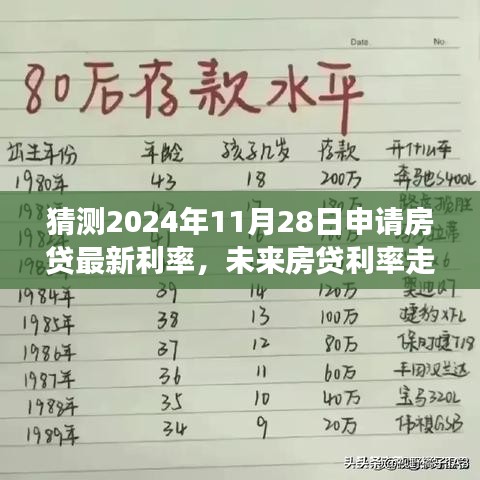 Date. No.
80后存款水平
出生年份 年龄 孩子几岁 存款 开什么车
1980年 43 18 200万 奔驰S400L
猜测2024年11月28日申请房
贷最新利率，未来房贷利率走
1984年 39 14 120万 奥迪Q7
1985年 38 13 100万 捷豹XFL
1986年 37 12 80万 保时捷718
1987年 36 11 60万 丰田汉兰达
1988年 35 10 40万 宝马320L
1989年 34 9 20万 传祺GS8
头条